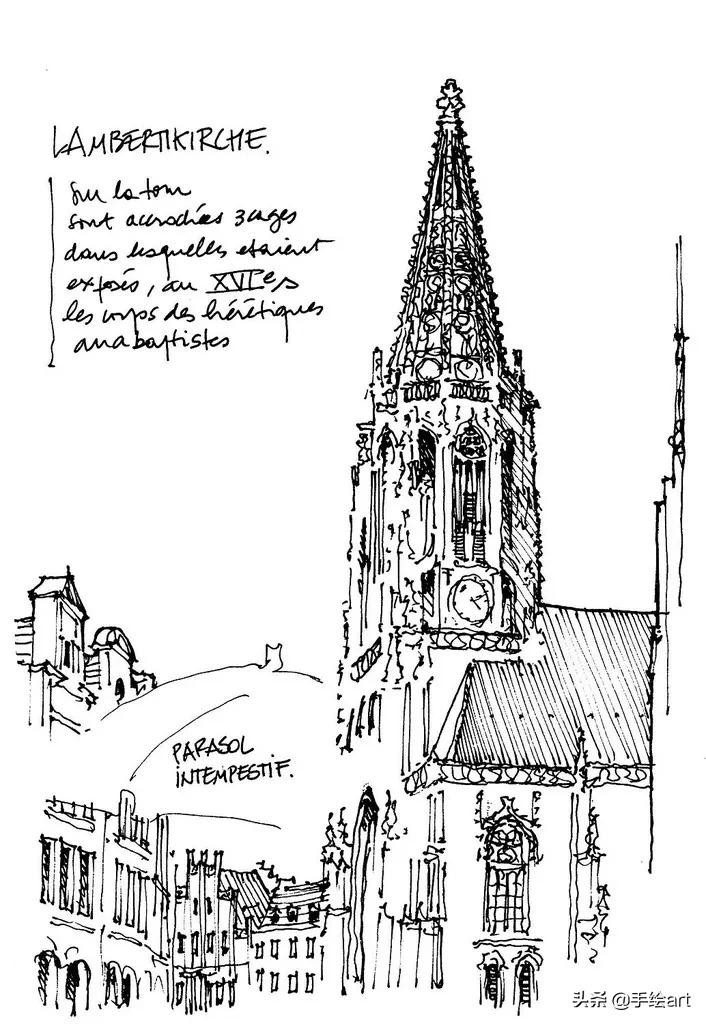 LAMBERTIKIRCHE.
Sur la tour
sont accrochées 3 cages
dans lesquelles etaient
exposés, au XVIe s
les corps des hérétiques
anabaptistes
PARASOL
INTEMPESTIF.
头条 @手绘art